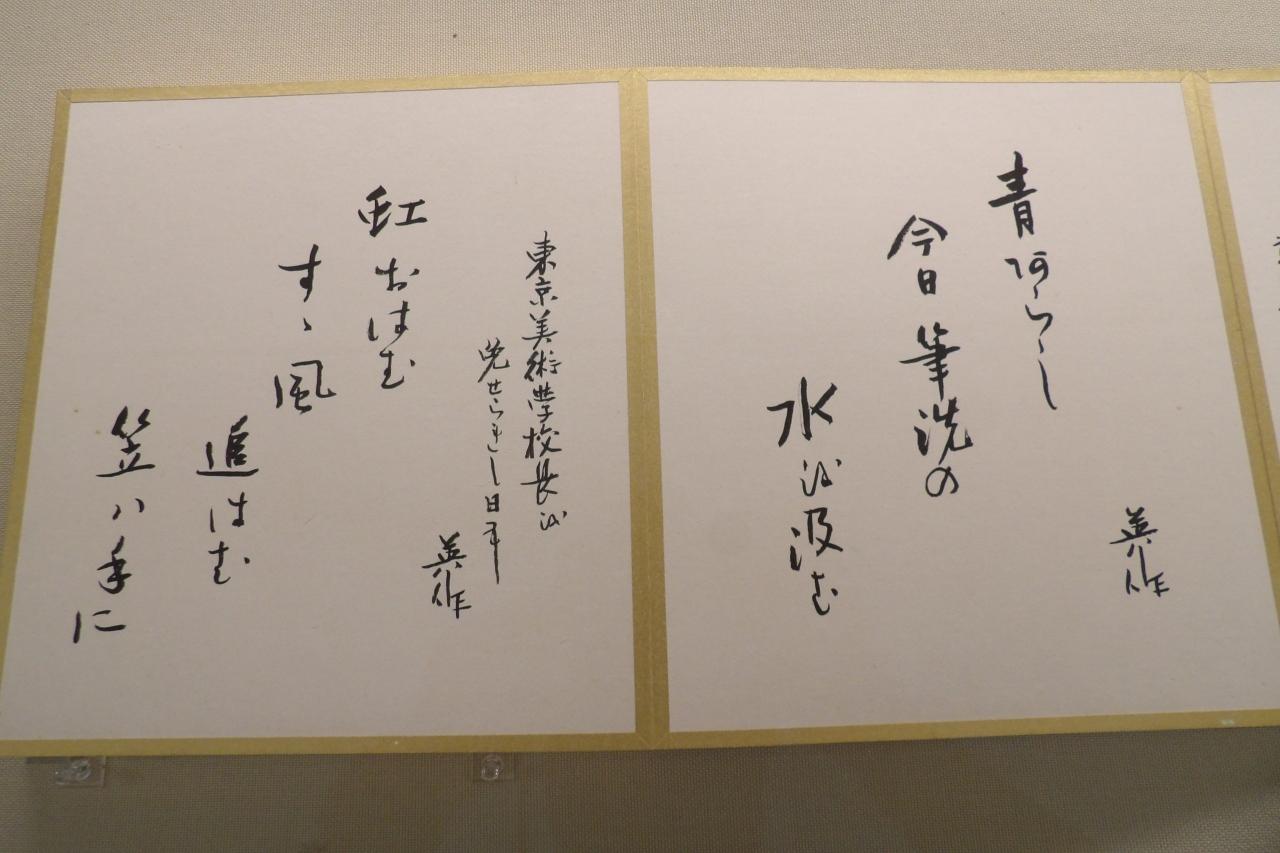 英作
青阿らし
今日筆洗の
水を汲む
東京美術学校長を
免せられし日
英作
虹おはむ
すゝ風
追はむ
笠ハ手に